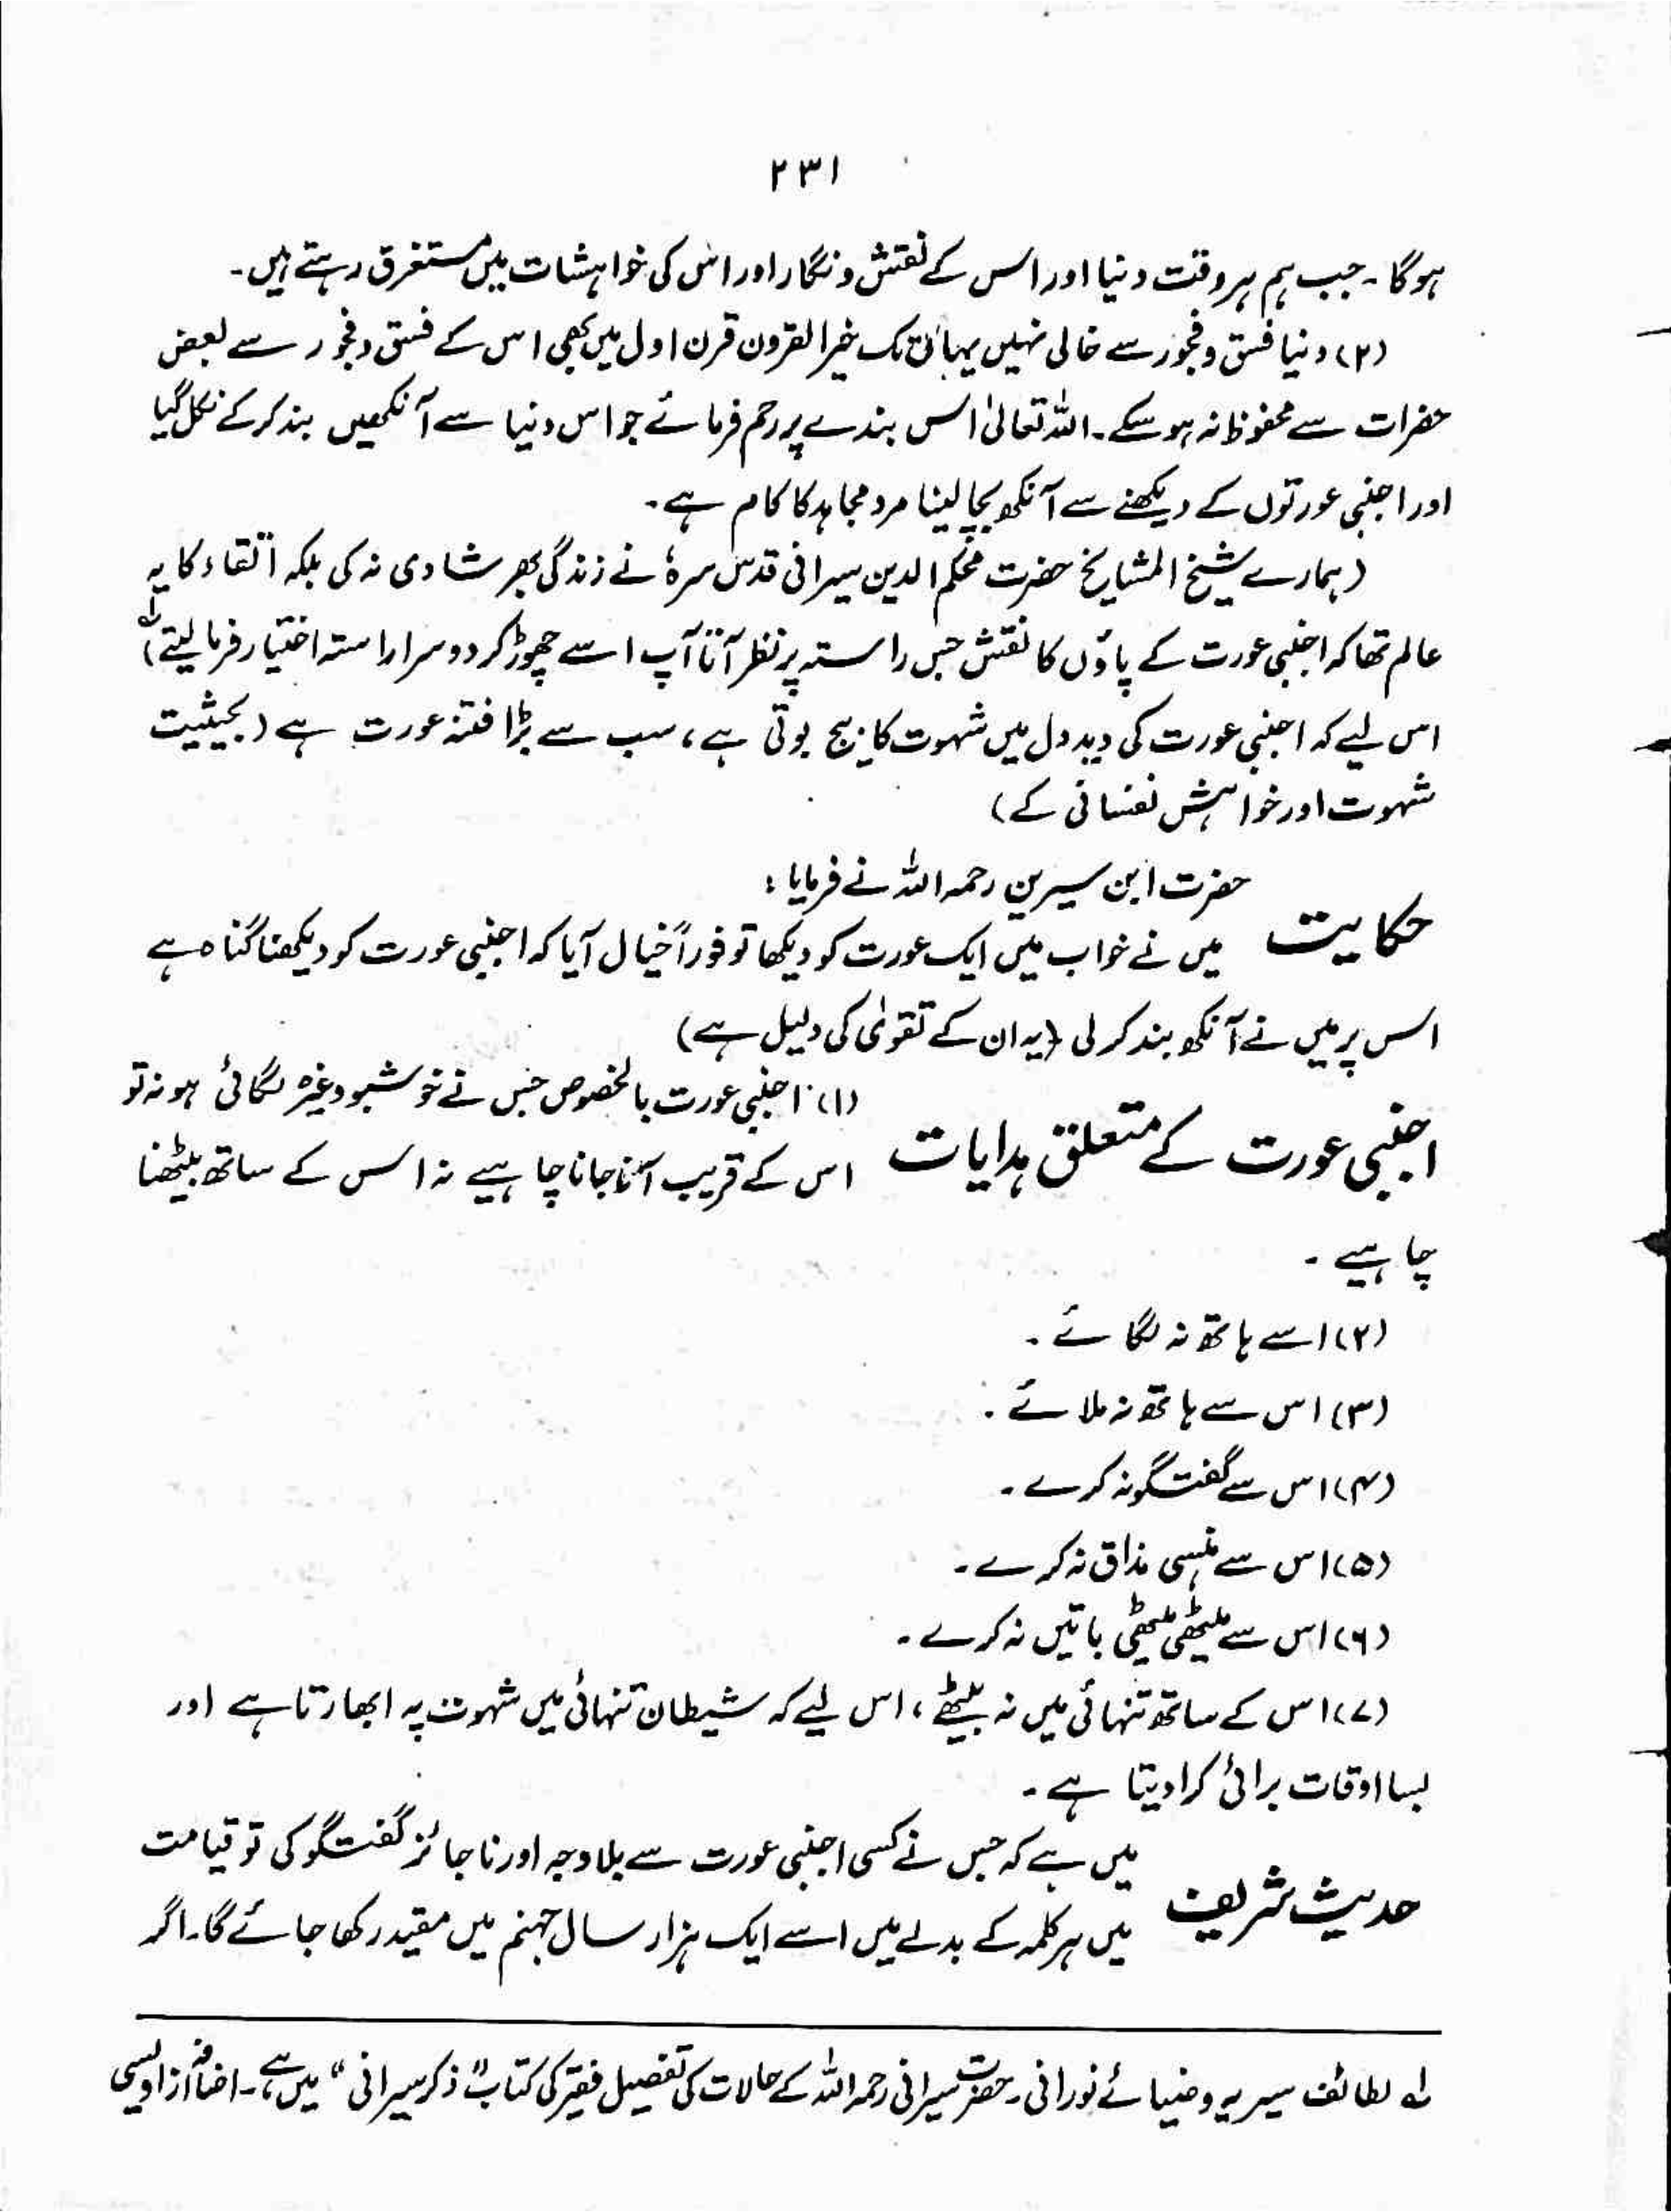 ۲۳۱
ہوگا۔ جب ہم ہر وقت دنیا اور اس کے نقش و نگار اور اس کی خواہشات میں مستغرق رہتے ہیں۔
(۲) دنیا فسق و فجور سے خالی نہیں یہاں تک خیر القرون قرن اول میں بھی اس کے فسق و فجور سے بعض
حضرات سے محفوظ نہ ہو سکے۔ اللہ تعالیٰ اس بندے پر رحم فرمائے جو اس دنیا سے آنکھیں بند کر کے نکل گیا
اور اجنبی عورتوں کے دیکھنے سے آنکھ بچا لینا مرد مجاہد کا کام ہے۔
(ہمارے شیخ المشایخ حضرت محکم الدین سیرانی قدس سرہٗ نے زندگی بھر شادی نہ کی بلکہ اتقاء کا یہ
عالم تھا کہ اجنبی عورت کے پاؤں کا نقش جس راستہ پر نظر آتا آپ اسے چھوڑ کر دوسرا راستہ اختیار فرما لیتے) لہ
اس لیے کہ اجنبی عورت کی دید دل میں شہوت کا بیج بوتی ہے، سب سے بڑا فتنہ عورت ہے (بحیثیت
شہوت اور خواہش نفسانی کے)
حضرت ابن سیرین رحمہ اللہ نے فرمایا:
حکایت میں نے خواب میں ایک عورت کو دیکھا تو فوراً خیال آیا کہ اجنبی عورت کو دیکھنا گناہ ہے
اس پر میں نے آنکھ بند کر لی (یہ ان کے تقویٰ کی دلیل ہے)
(۱) اجنبی عورت بالخصوص جس نے خوشبو وغیرہ لگائی ہو نہ تو
اجنبی عورت کے متعلق ہدایات اس کے قریب آنا جانا چاہیے نہ اس کے ساتھ بیٹھنا
چاہیے۔
(۲) اسے ہاتھ نہ لگائے۔
(۳) اس سے ہاتھ نہ ملائے۔
(۴) اس سے گفتگو نہ کرے۔
(۵) اس سے ہنسی مذاق نہ کرے۔
(۶) اس سے میٹھی میٹھی باتیں نہ کرے۔
(۷) اس کے ساتھ تنہائی میں نہ بیٹھے، اس لیے کہ شیطان تنہائی میں شہوت پہ ابھارتا ہے اور
بسا اوقات برائی کرا دیتا ہے۔
میں ہے کہ جس نے کسی اجنبی عورت سے بلاوجہ اور ناجائز گفتگو کی تو قیامت
حدیث شریف میں ہر کلمہ کے بدلے میں اسے ایک ہزار سال جہنم میں مقید رکھا جائے گا۔ اگر
لہ لطائف سیریہ و ضیائے نورانی۔ حضرت سیرانی رحمہ اللہ کے حالات کی تفصیل فقیر کی کتاب "ذکر سیرانی" میں ہے۔ اضافہ از اویسی